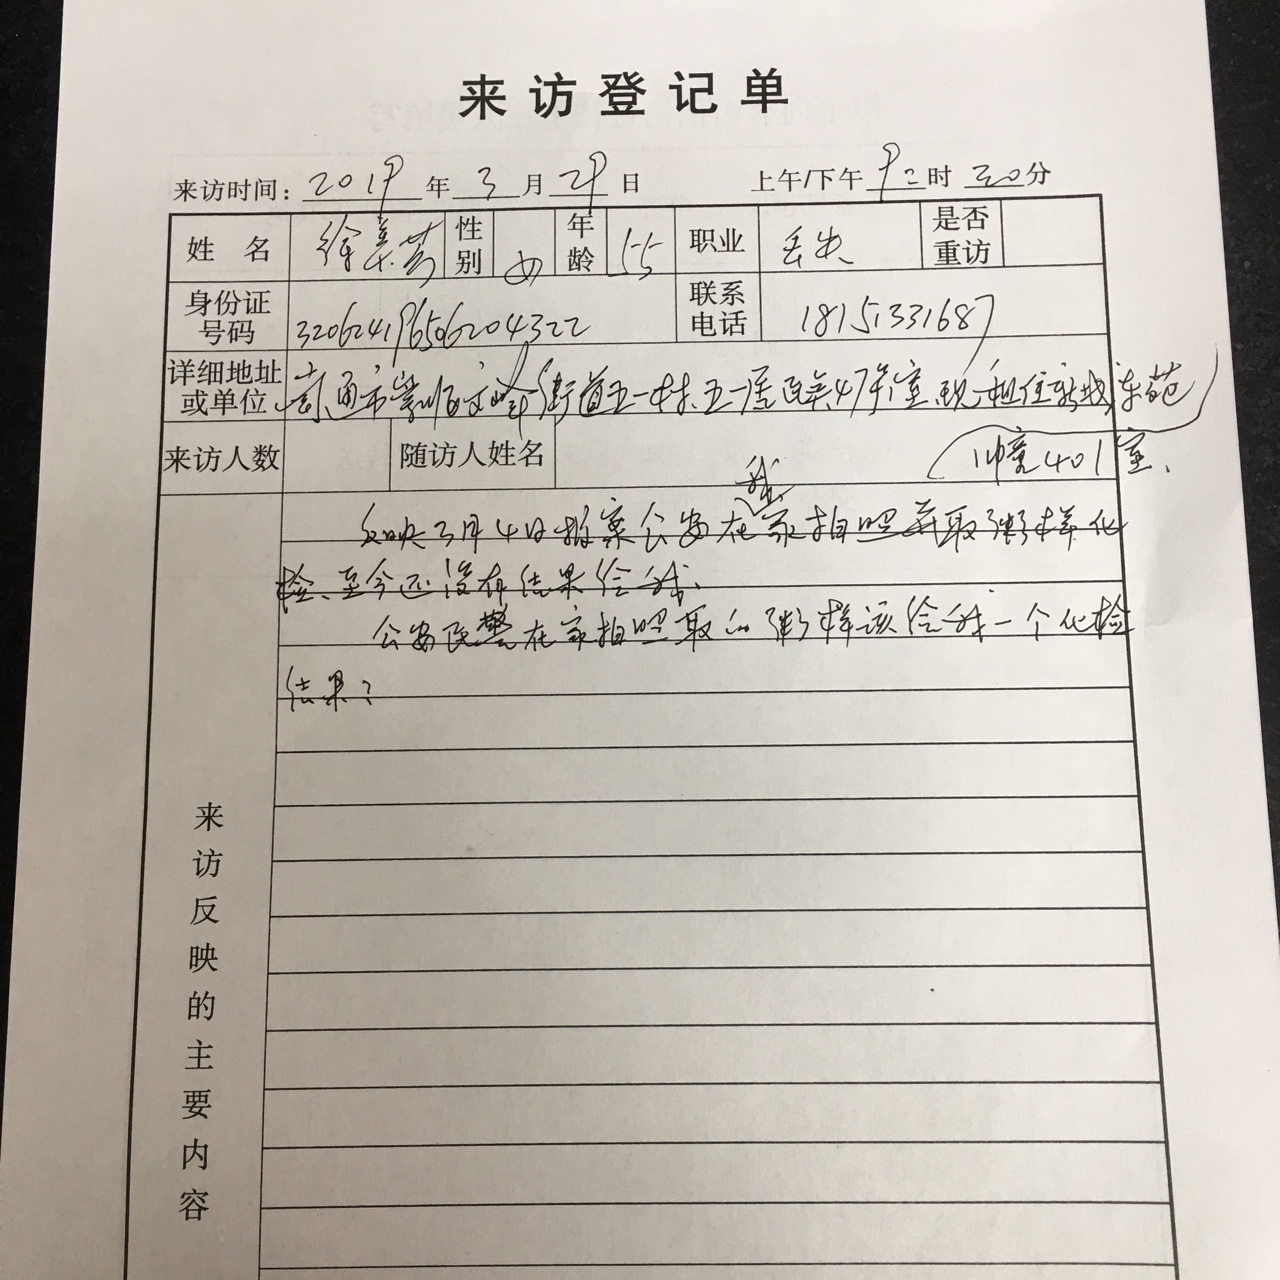 来访登记单
来访时间: 2019 年 3 月 29 日 上午/下午 时 30 分
姓 名 徐美 性别 女 年龄 55 职业 丢失 是否重访
身份证号码 联系电话 18151331687
详细地址或单位 南通市崇川区文峰街道五一村、五一居 47 室、现租住新城东苑
401室、
来访人数 随访人姓名
我
反映3月4日报案公安在家拍照获取粥样化
检、至今还没有结果给我、
公安民警在家拍照取的粥样该给我一个化检
结果?
来访反映的主要内容